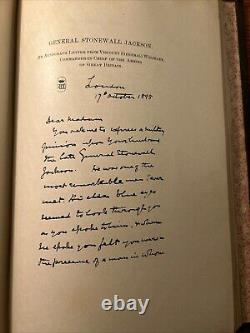 GENERAL STONEWALL JACKSON.
AN AUTOGRAPH LETTER FROM VISCOUNT (GENERAL) WOLSELEY,
COMMANDER-IN-CHIEF OF THE ARMIES
OF GREAT BRITAIN.
London
17th October 1895
Dear Madam
You ask me to express a military
opinion upon Your husband
the late General Stonewall
Jackson. He was one of the
most remarkable men I ever
met. His clear blue eyes
seemed to look through you
as you spoke to him, & when
he spoke you felt you were in
the presence of a man in whom
thumbnailimage.com